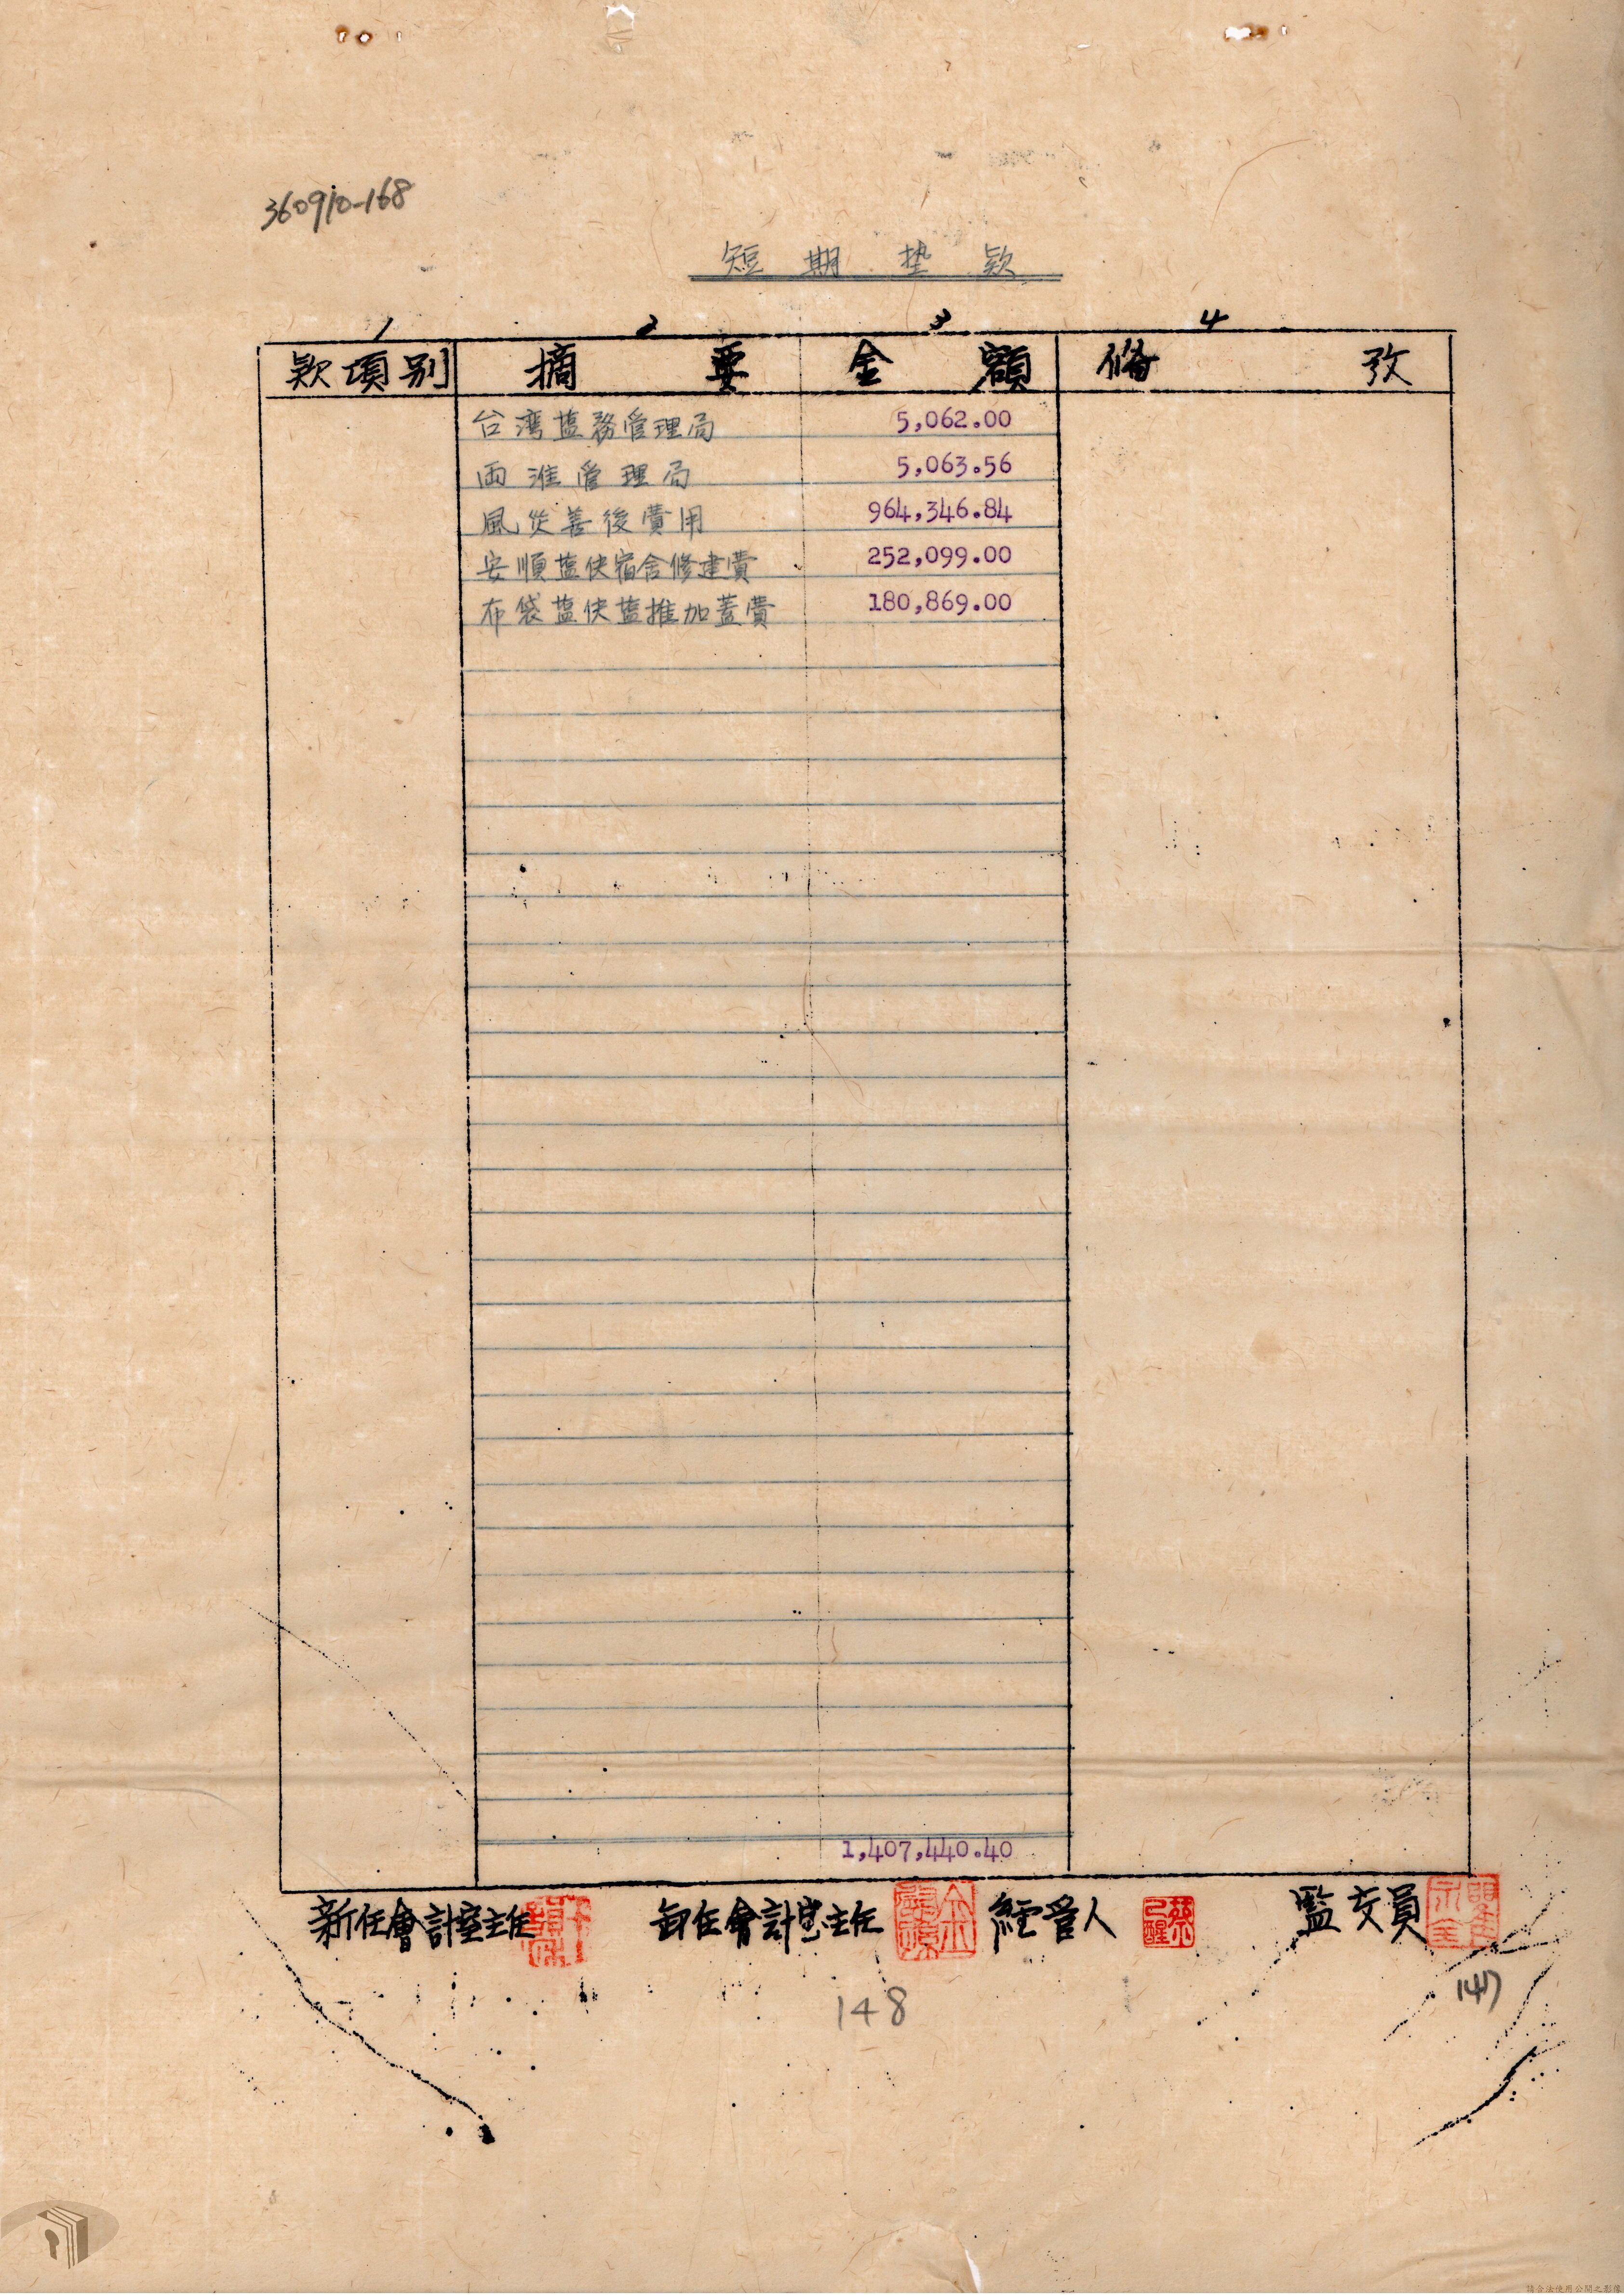 360910-168
短期墊款
1 2 3 4
款項别 摘要 金額 俻攷
台湾盐務管理局 5,062.00
両淮管理局 5,063.56
風災善後費用 964,346.84
安順盐伕宿舍修建費 252,099.00
布袋盐伕盐堆加蓋費 180,869.00
1,407,440.40
新任會計室主任 卸任會計室主任 經管人 蔡己醒 監交員
148
147
請合法使用公開之影像